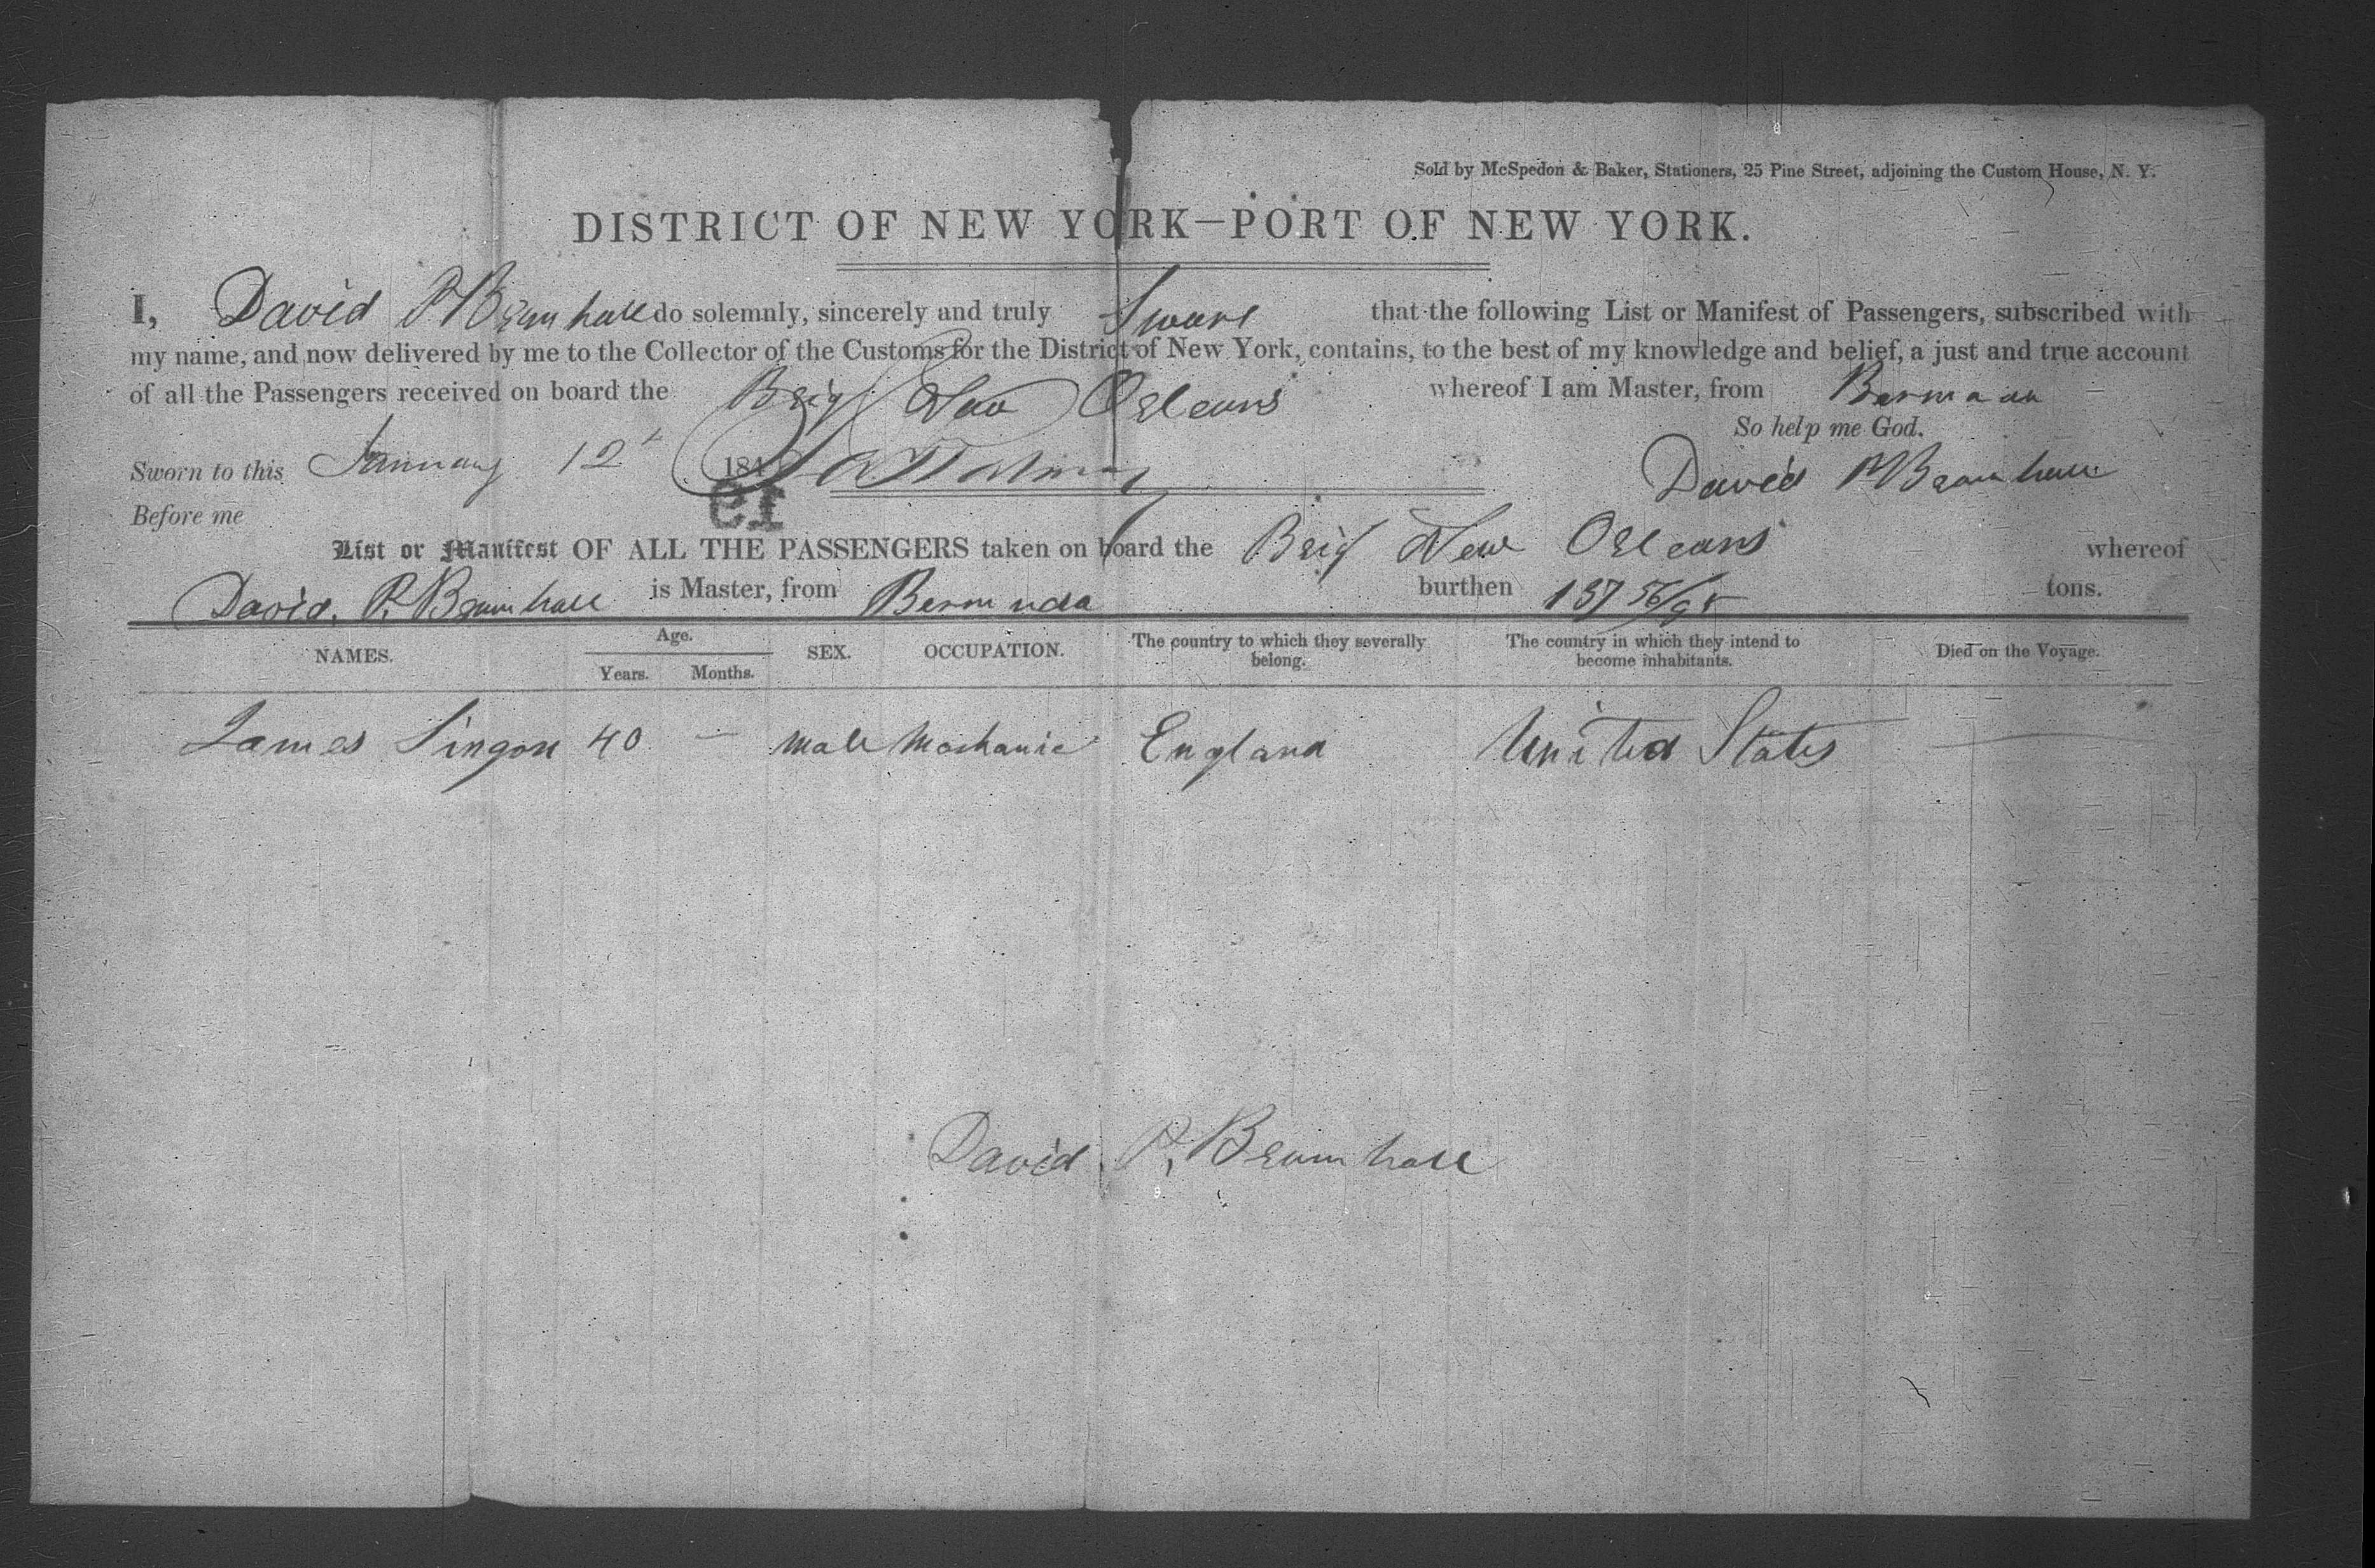 Sold by McSpedon & Baker, Stationers, 25 Pine Street, adjoining the Custom House, N. Y.
DISTRICT OF NEW YORK—PORT OF NEW YORK.
I, David P Bramhall do solemnly, sincerely and truly Swear that the following List or Manifest of Passengers, subscribed with
my name, and now delivered by me to the Collector of the Customs for the District of New York, contains, to the best of my knowledge and belief, a just and true account
of all the Passengers received on board the Brig New Orleans whereof I am Master, from
So help me God.
Sworn to this January 12 184 David P Bramhall
Before me
List or Manifest OF ALL THE PASSENGERS taken on board the Brig New Orleans whereof
David. P. Bramhall is Master, from Bermuda burthen 137 56/95 tons.
NAMES. Age. Years. Months. SEX. OCCUPATION. The country to which they severally belong. The country in which they intend to become inhabitants. Died on the Voyage.
James Singon 40 — male Machanic England United States —
David P. Bramhall